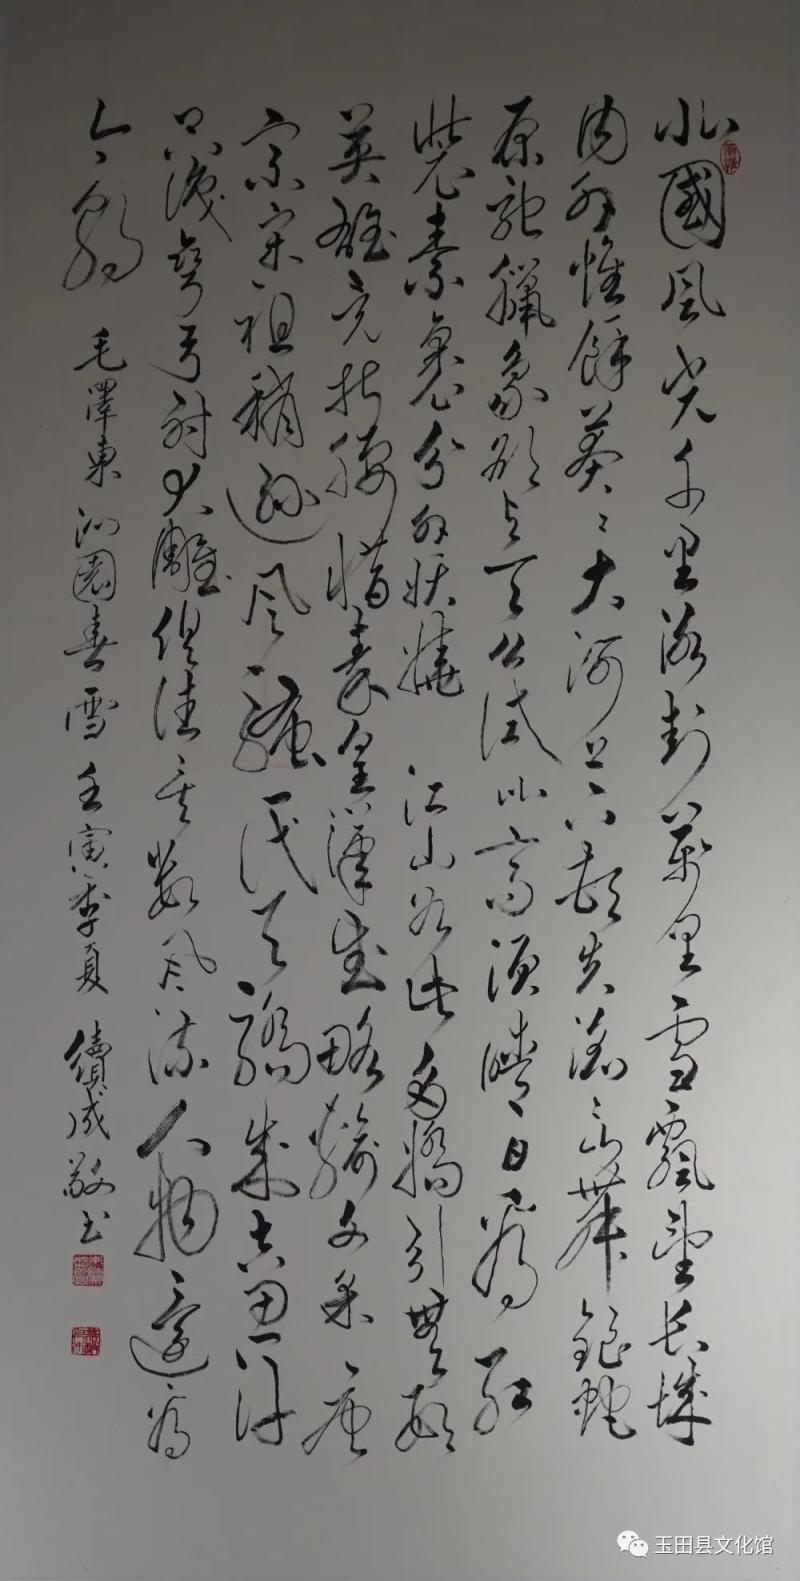 北國風光千里冰封萬里雪飄望長城
内外惟餘莽〻大河上下頓失滔〻山舞銀蛇
原馳臘象欲与天公試比高須晴日看紅
裝素裹分外妖嬈 江山如此多嬌引無數
英雄竞折腰惜秦皇漢武略輸文采唐
宗宋祖稍遜风騷一代天驕成吉思汗
只識彎弓射大雕俱往矣數风流人物還看
今朝 毛澤東沁園春雪 壬寅季夏 續成敬书
玉田县文化馆